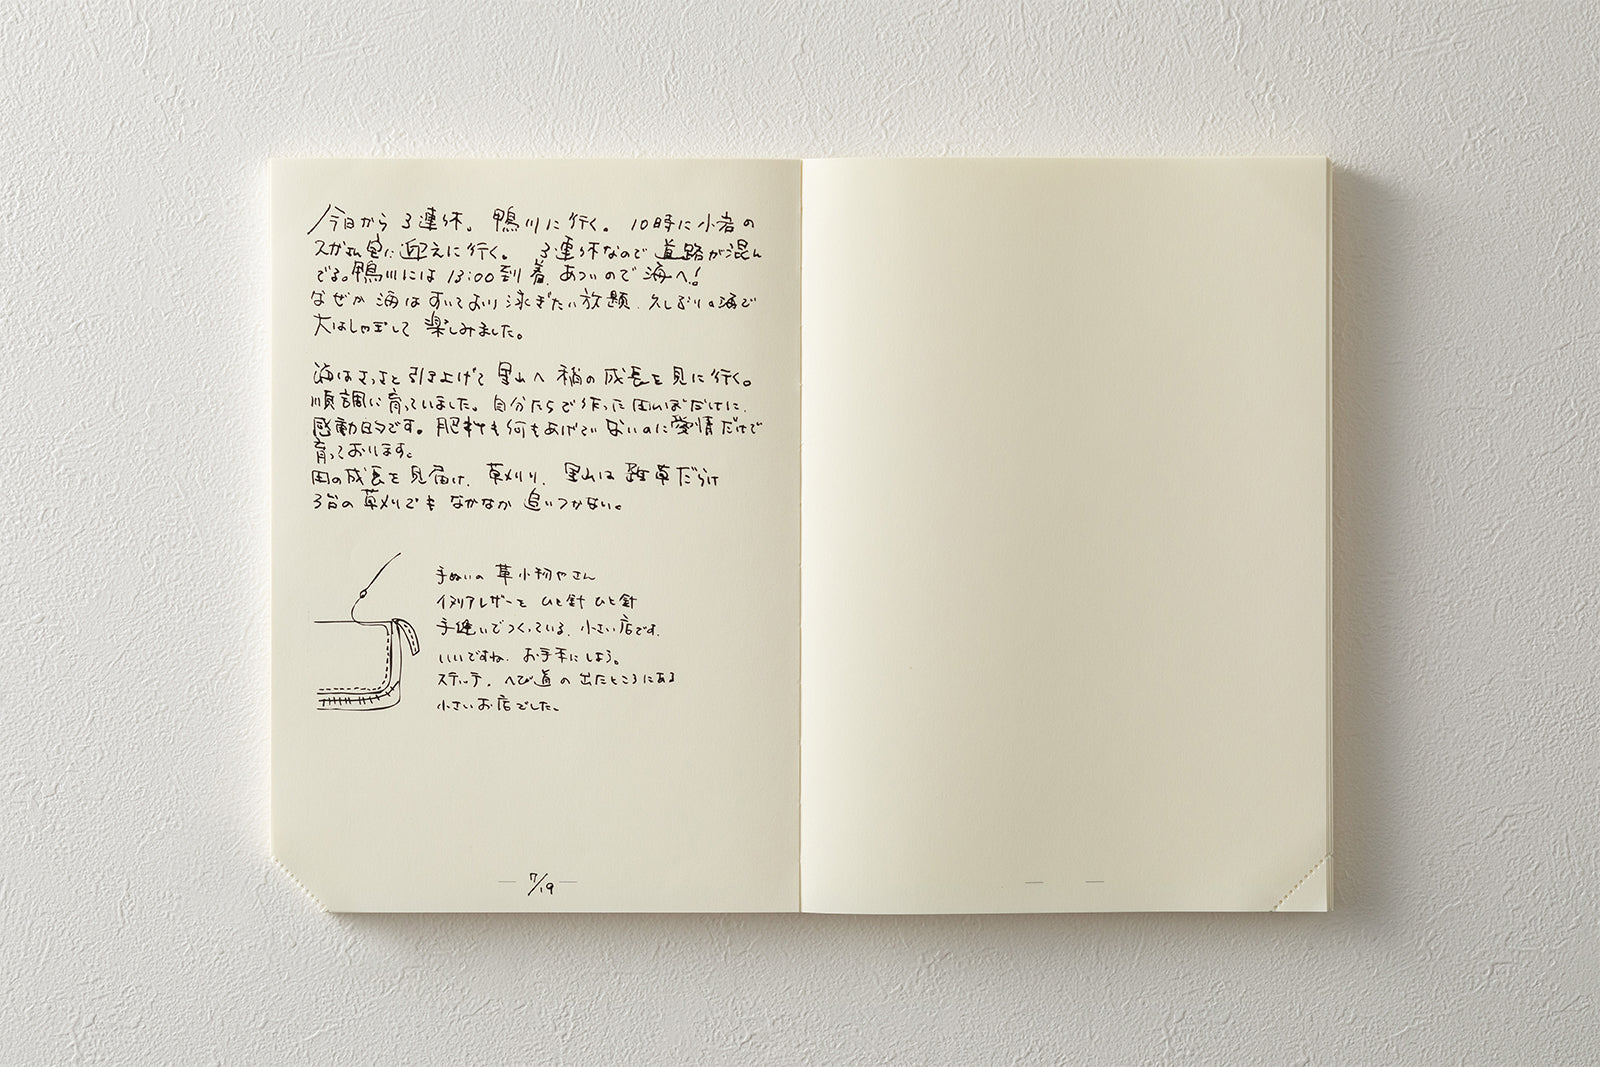 今日から 3連休。鴨川に行く。10時に小岩の
スガさん宅に迎えに行く。 3連休なので道路が混ん
でる。鴨川には 13:00到着、あついので海へ!
なぜか海はすいており泳ぎたい放題、久しぶりの海で
大はしゃぎして 楽しみました。
海はさっさと引き上げて 里山へ 稲の成長を見に行く。
順調に育っていました。自分たちで作った田んぼだけに、
感動的です。肥料も何もあげていないのに愛情だけで
育っております。
田の成長を見届け、草刈り、里山は雑草だらけ
3台の草刈りでも なかなか 追いつかない。
手ぬいの 革小物やさん
イタリアレザーを ひと針 ひと針
手縫いでつくっている、小さい店です。
いいですね、お手本にしよう。
ステッチ、へび道の 出たところにある
小さいお店でした。
7/19